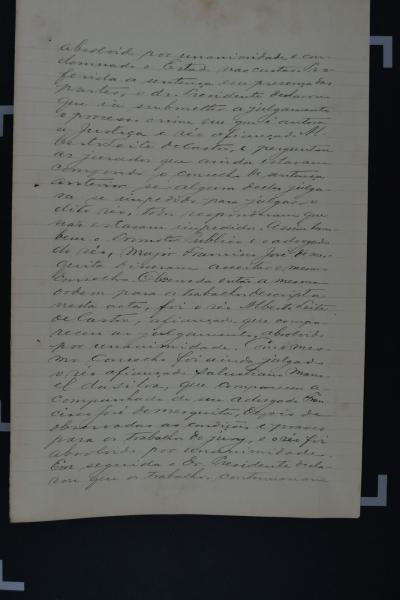 absolvido por unanimidade e con-
demnado o Estado nas custas. Pro-
ferida a sentença em presença das
partes, o dr. Presidente declarou
que ia submetter a julgamento
o processo crime em que é autora
a Justiça e réo afiançado Al-
berto Leite de Castro, e perguntou
aos jurados que ainda estavam
compondo o conselho de sentença
anterior se algum delles julga-
va se impedido para julgar o
dito réo, todos responderam que
não estavam impedidos. Assim tam-
bem o Promotor Publico e o advogado
do réo, Major Francisco José de Mes-
quita disseram acceitar o mesmo
conselho. Observada então a mesma
ordem para os trabalhos descripta
nesta acta, foi o réo Alberto Leite
de Castro, afiançado que compa-
receu ao julgamento, absolvido
por unanimidade. Pelo mes-
mo Conselho foi ainda julgado
o réo afiançado Salustiano Mano-
el da Silva, que compareceu a
companhado de seu advogado Fran-
cisco José de Mesquita, depois de
observadas as condições e
para os trabalhos do jury, e o réo foi
absolvido por unanimidade.
Em seguida o Dr. Presidente decla-
rou que os trabalhos continuavam